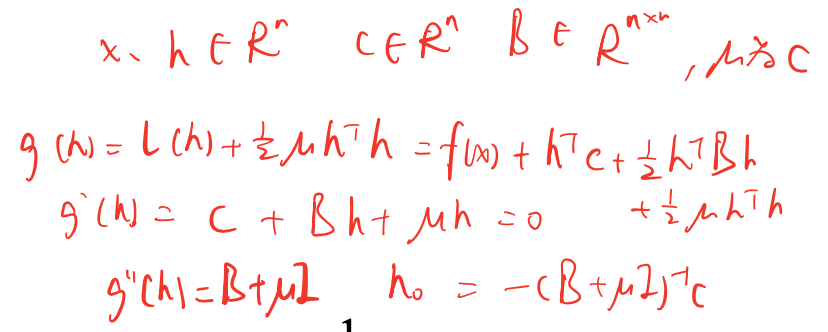 x、h ∈ Rⁿ c ∈ Rⁿ B ∈ Rⁿˣⁿ , μ为c
g(h) = L(h) + ½μhᵀh = f(x) + hᵀc + ½hᵀBh
+ ½μhᵀh
g'(h) = c + Bh + μh = 0
g''(h) = B + μI h₀ = -(B + μI)⁻¹c
1